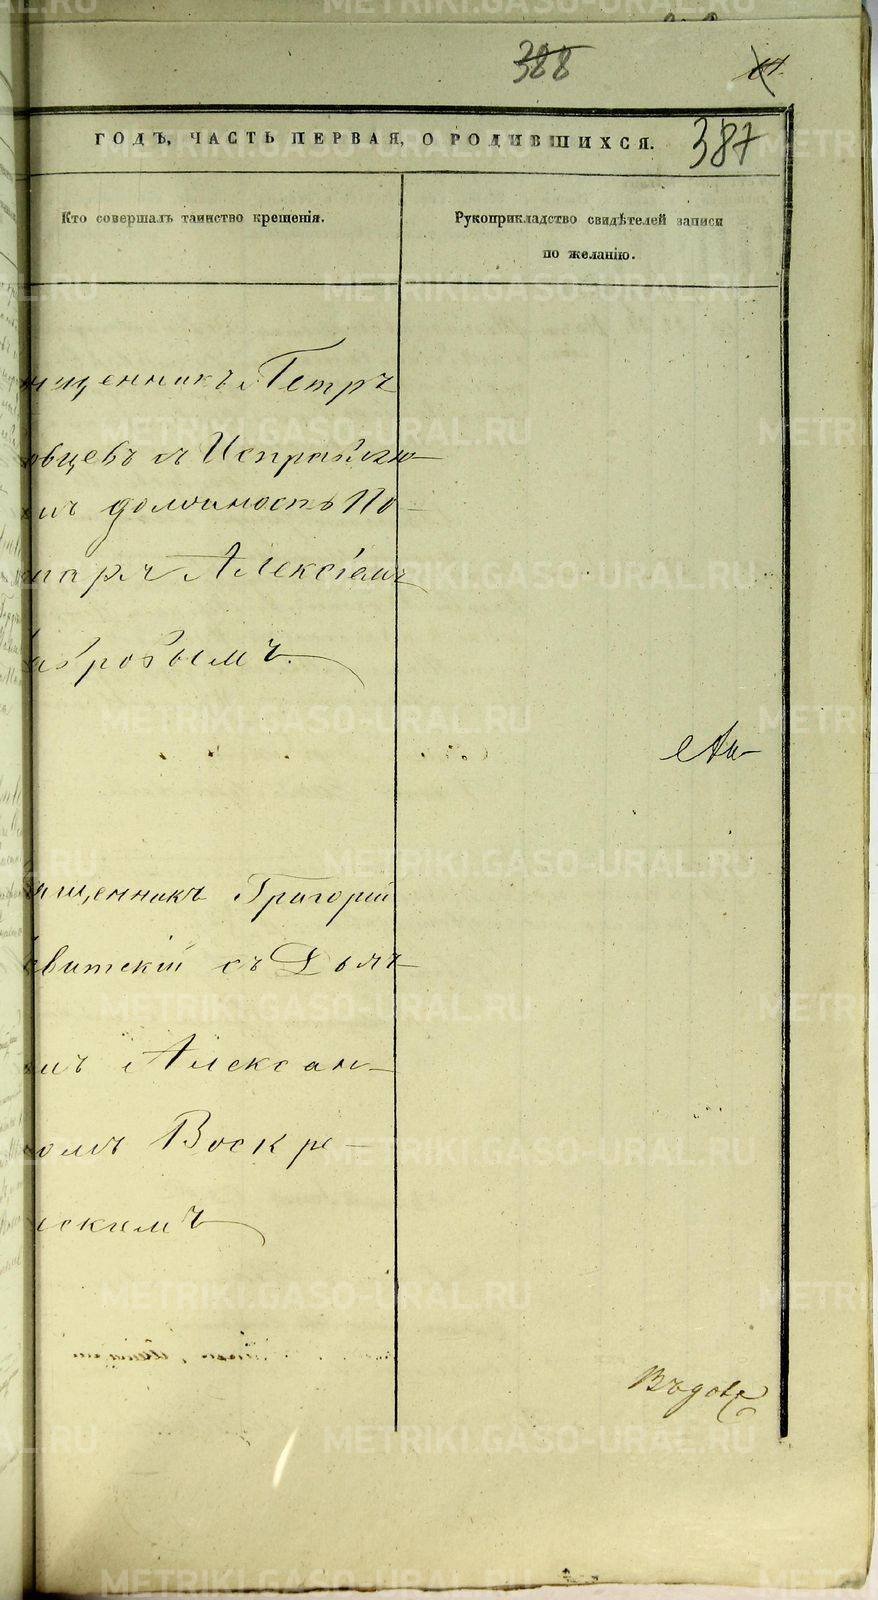 388
387
ГОДЪ, ЧАСТЬ ПЕРВАЯ, О РОДИВШИХСЯ.
Кто совершалъ таинство крещенія.
Рукоприкладство свидѣтелей записи
по желанію.
щенникъ Петръ
овцевъ и Исправляю-
должность По-
маря Алексіемъ
овымъ.
щенникъ Григорій
витскій съ Дьяч-
Алексан-
Воскре-
скимъ
METRIKI.GASO-URAL.RU